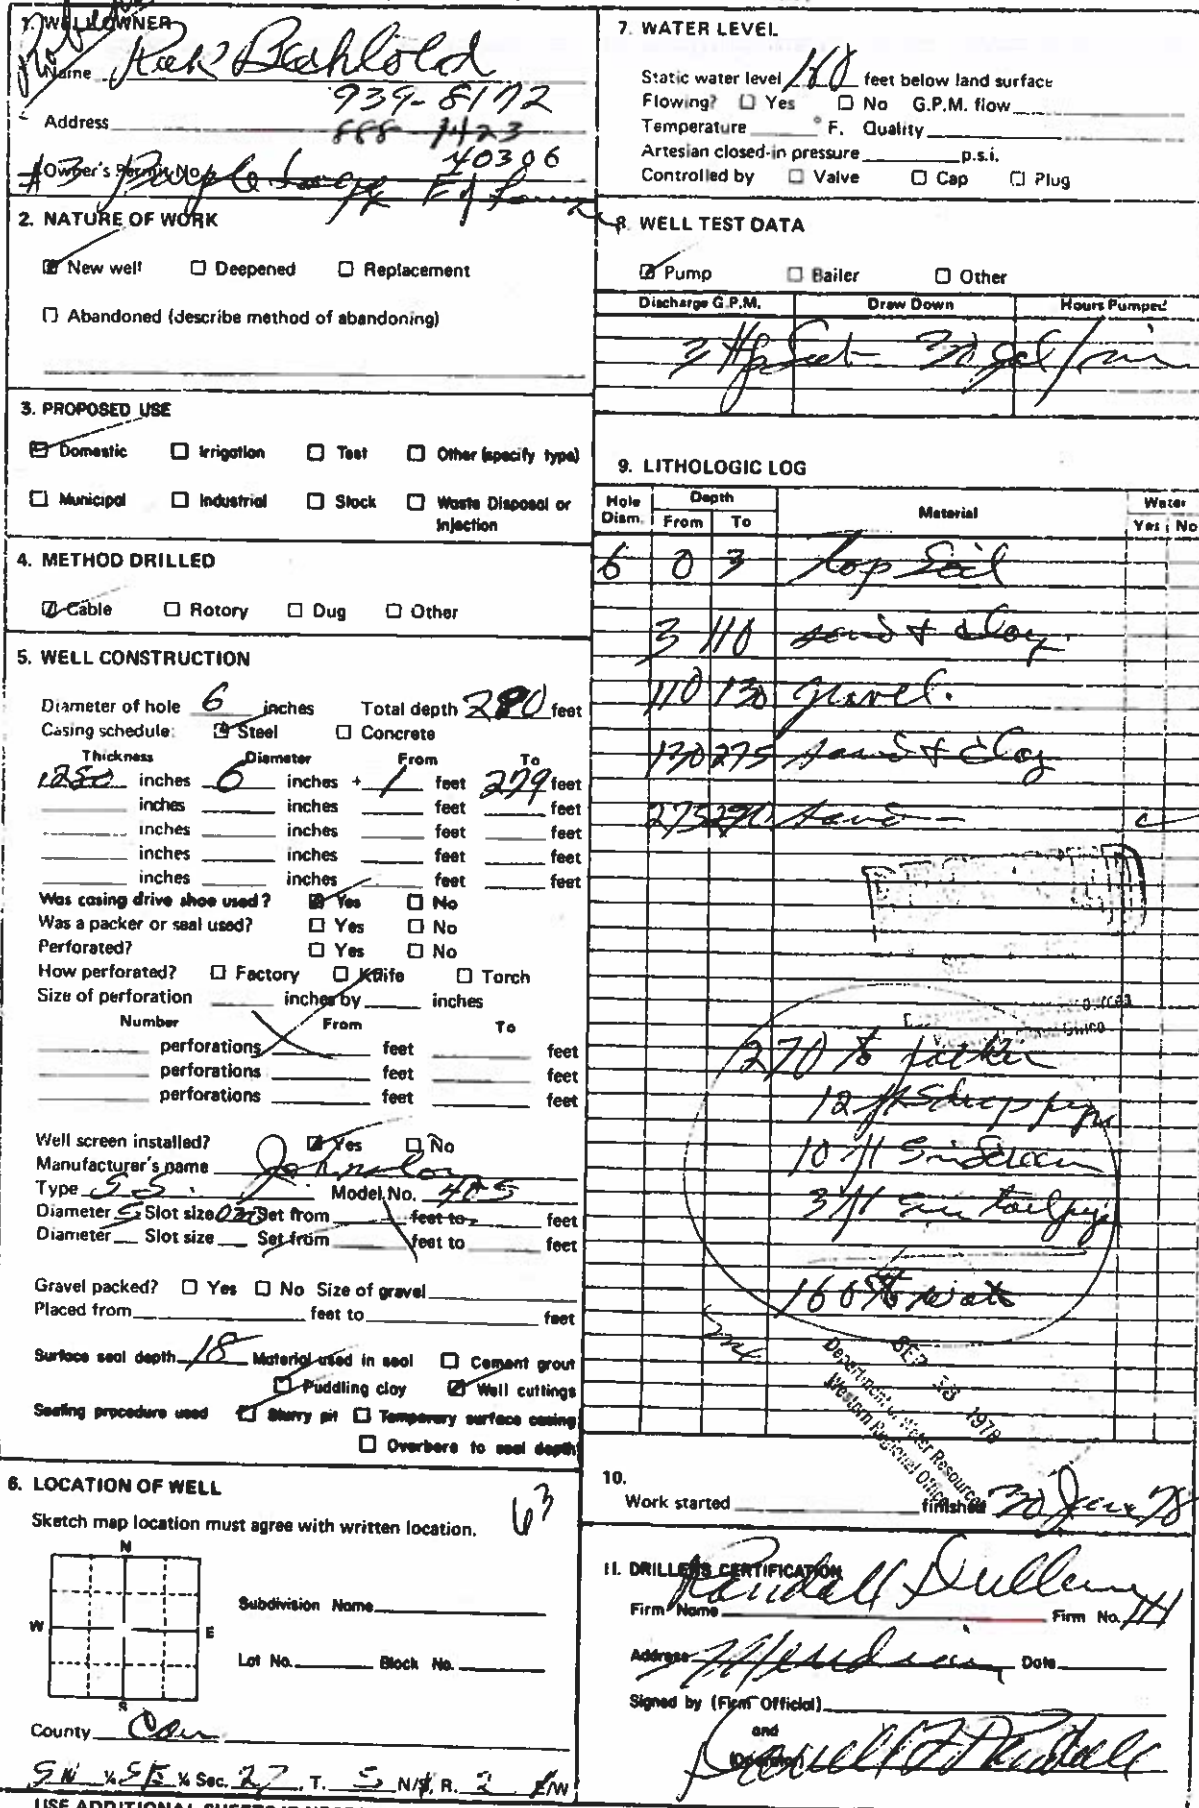 1. WELL OWNER
Name
939-8172
Address 888-1423
Owner's Permit No. 40306
#3 Purple Sage
2. NATURE OF WORK
New well Deepened Replacement
Abandoned (describe method of abandoning)
3. PROPOSED USE
Domestic Irrigation Test Other (specify type)
Municipal Industrial Stock Waste Disposal or Injection
4. METHOD DRILLED
Cable Rotory Dug Other
5. WELL CONSTRUCTION
Diameter of hole 6 inches Total depth 290 feet
Casing schedule: Steel Concrete
Thickness Diameter From To
.250 inches 6 inches + 1 feet 279 feet
inches inches feet feet
inches inches feet feet
inches inches feet feet
inches inches feet feet
Was casing drive shoe used? Yes No
Was a packer or seal used? Yes No
Perforated? Yes No
How perforated? Factory Knife Torch
Size of perforation inches by inches
Number From To
perforations feet feet
perforations feet feet
perforations feet feet
Well screen installed? Yes No
Manufacturer's name Johnston
Type S.S. Model No.
Diameter 5 Slot size Set from feet to feet
Diameter Slot size Set from feet to feet
Gravel packed? Yes No Size of gravel
Placed from feet to feet
Surface seal depth 18 Material used in seal Cement grout
Puddling clay Well cuttings
Sealing procedure used Slurry pit Temporary surface casing
Overbore to seal depth
6. LOCATION OF WELL
63
Sketch map location must agree with written location.
N
W E
S
Subdivision Name
Lot No. Block No.
County Can
SW ¼ SE ¼ Sec. 27, T. 5 N/S, R. 2 E/W
7. WATER LEVEL
Static water level feet below land surface
Flowing? Yes No G.P.M. flow
Temperature ° F. Quality
Artesian closed-in pressure p.s.i.
Controlled by Valve Cap Plug
8. WELL TEST DATA
Pump Bailer Other
Discharge G.P.M. Draw Down Hours Pumped
3 Hp 30 gal/min
9. LITHOLOGIC LOG
Hole Diam. Depth From To Material Water Yes No
6 0 3 Top Soil
3 110 sand & clay
110 130 gravel.
130 275 sand & clay
275 290 sand
270 ft packer
12 ft
10 ft screen
3 ft tailpipe
160 ft
SEP 1978
Department of Water Resources
Western Regional Office
10.
Work started finished 30 June 78
11. DRILLERS CERTIFICATION
Firm Name Randall Drilling Firm No. 114
Address Meridian Date
Signed by (Firm Official)
and
(Operator) Randall